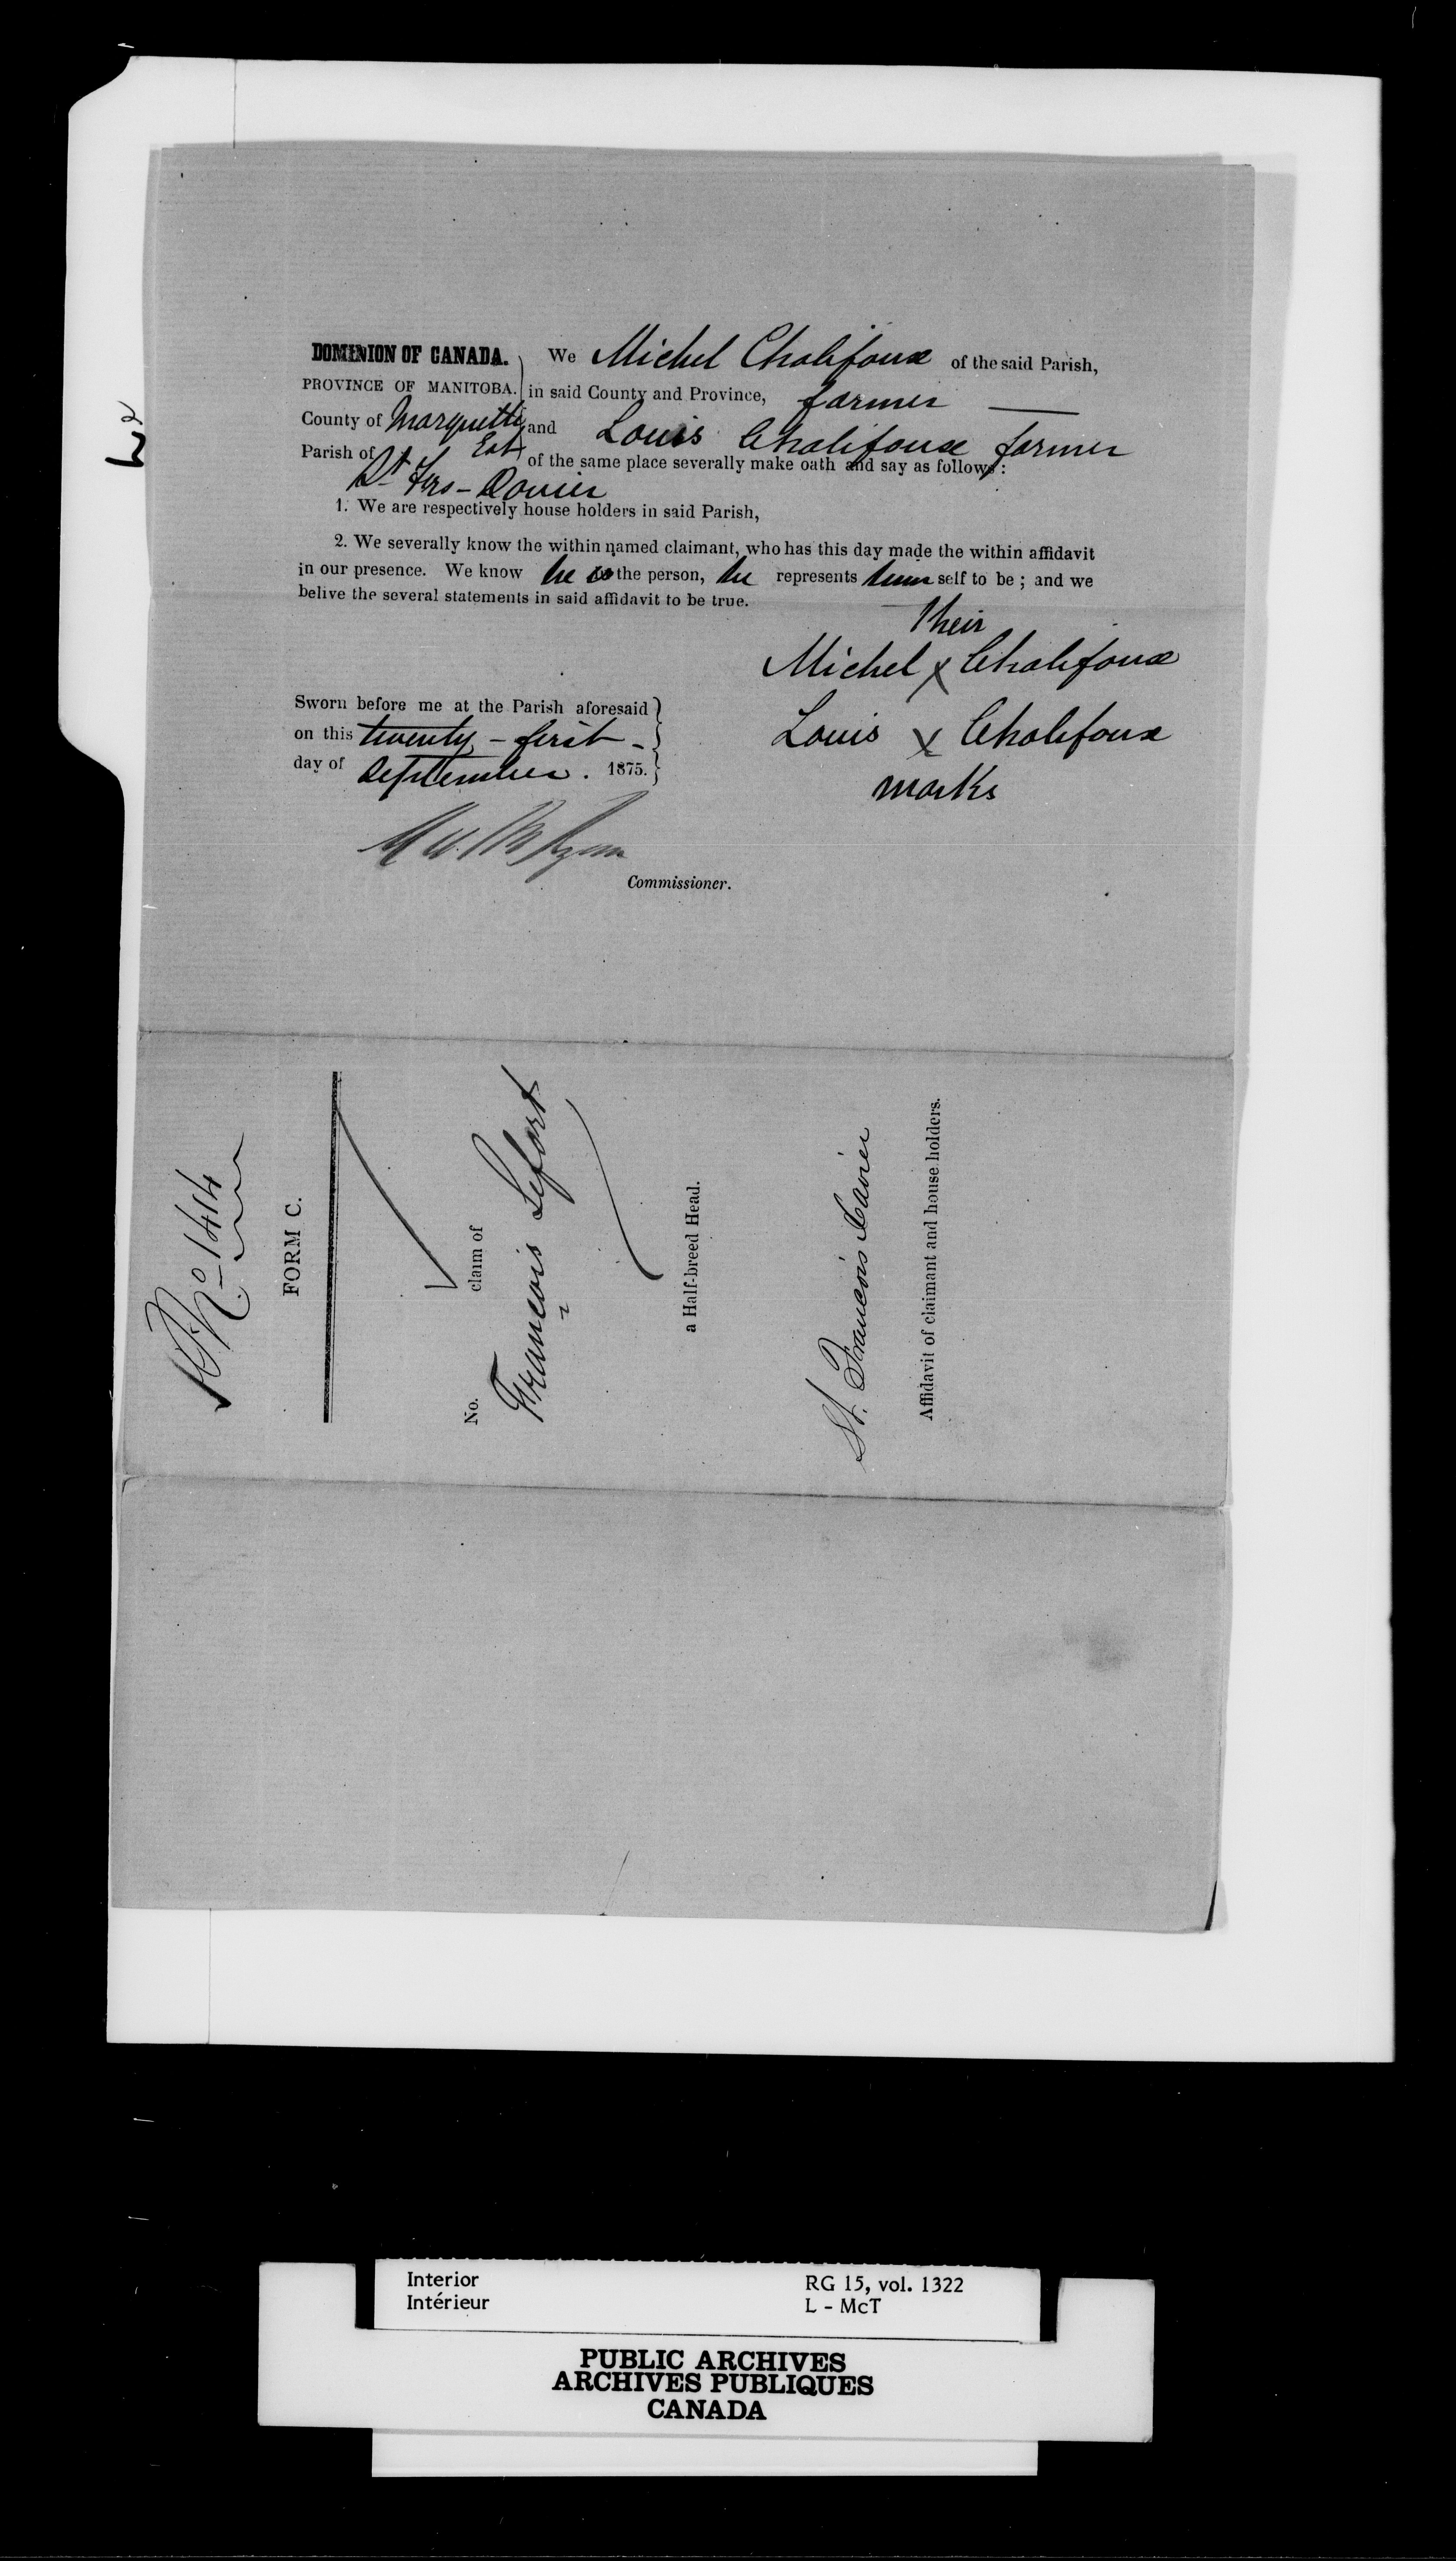 DOMINION OF CANADA. We Michel Chalifoux of the said Parish,
PROVINCE OF MANITOBA. in said County and Province, farmer
County of Marquette East and Louis Chalifoux farmer
Parish of St Frs-Xavier of the same place severally make oath and say as follows:
1. We are respectively house holders in said Parish,
2. We severally know the within named claimant, who has this day made the within affidavit
in our presence. We know he is the person, he represents him self to be; and we
belive the several statements in said affidavit to be true.
Their
Michel x Chalifoux
Louis x Chalifoux
marks
Sworn before me at the Parish aforesaid
on this twenty-first
day of September. 1875.
Ryan
Commissioner.
No 1414
FORM C.
No. claim of
François Lefort
a Half-breed Head.
St. François Xavier
Affidavit of claimant and house holders.
Interior RG 15, vol. 1322
Intérieur L - McT
PUBLIC ARCHIVES
ARCHIVES PUBLIQUES
CANADA